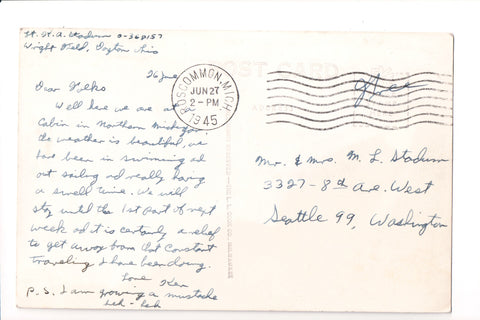 Lt. H. A. Stadum O-360157
Wright Field, Dayton Ohio
26 June
Dear Folks
Well here we are at a
Cabin in Northern Michigan
the weather is beautiful, we
have been in swimming ad
out sailing ad really having
a swell time. We will
stay until the 1st part of next
week ad it is certainly a relief
to get away from that Constant
traveling I have been doing.
Love
P.S. I am growing a mustache
heh - heh
ROSCOMMON, MICH.
JUN 27
2 - PM
1945
POST CARD
Free
Mr. & Mrs. M. L. Stadum
3327 - 8th Ave. West
Seattle 99, Washington